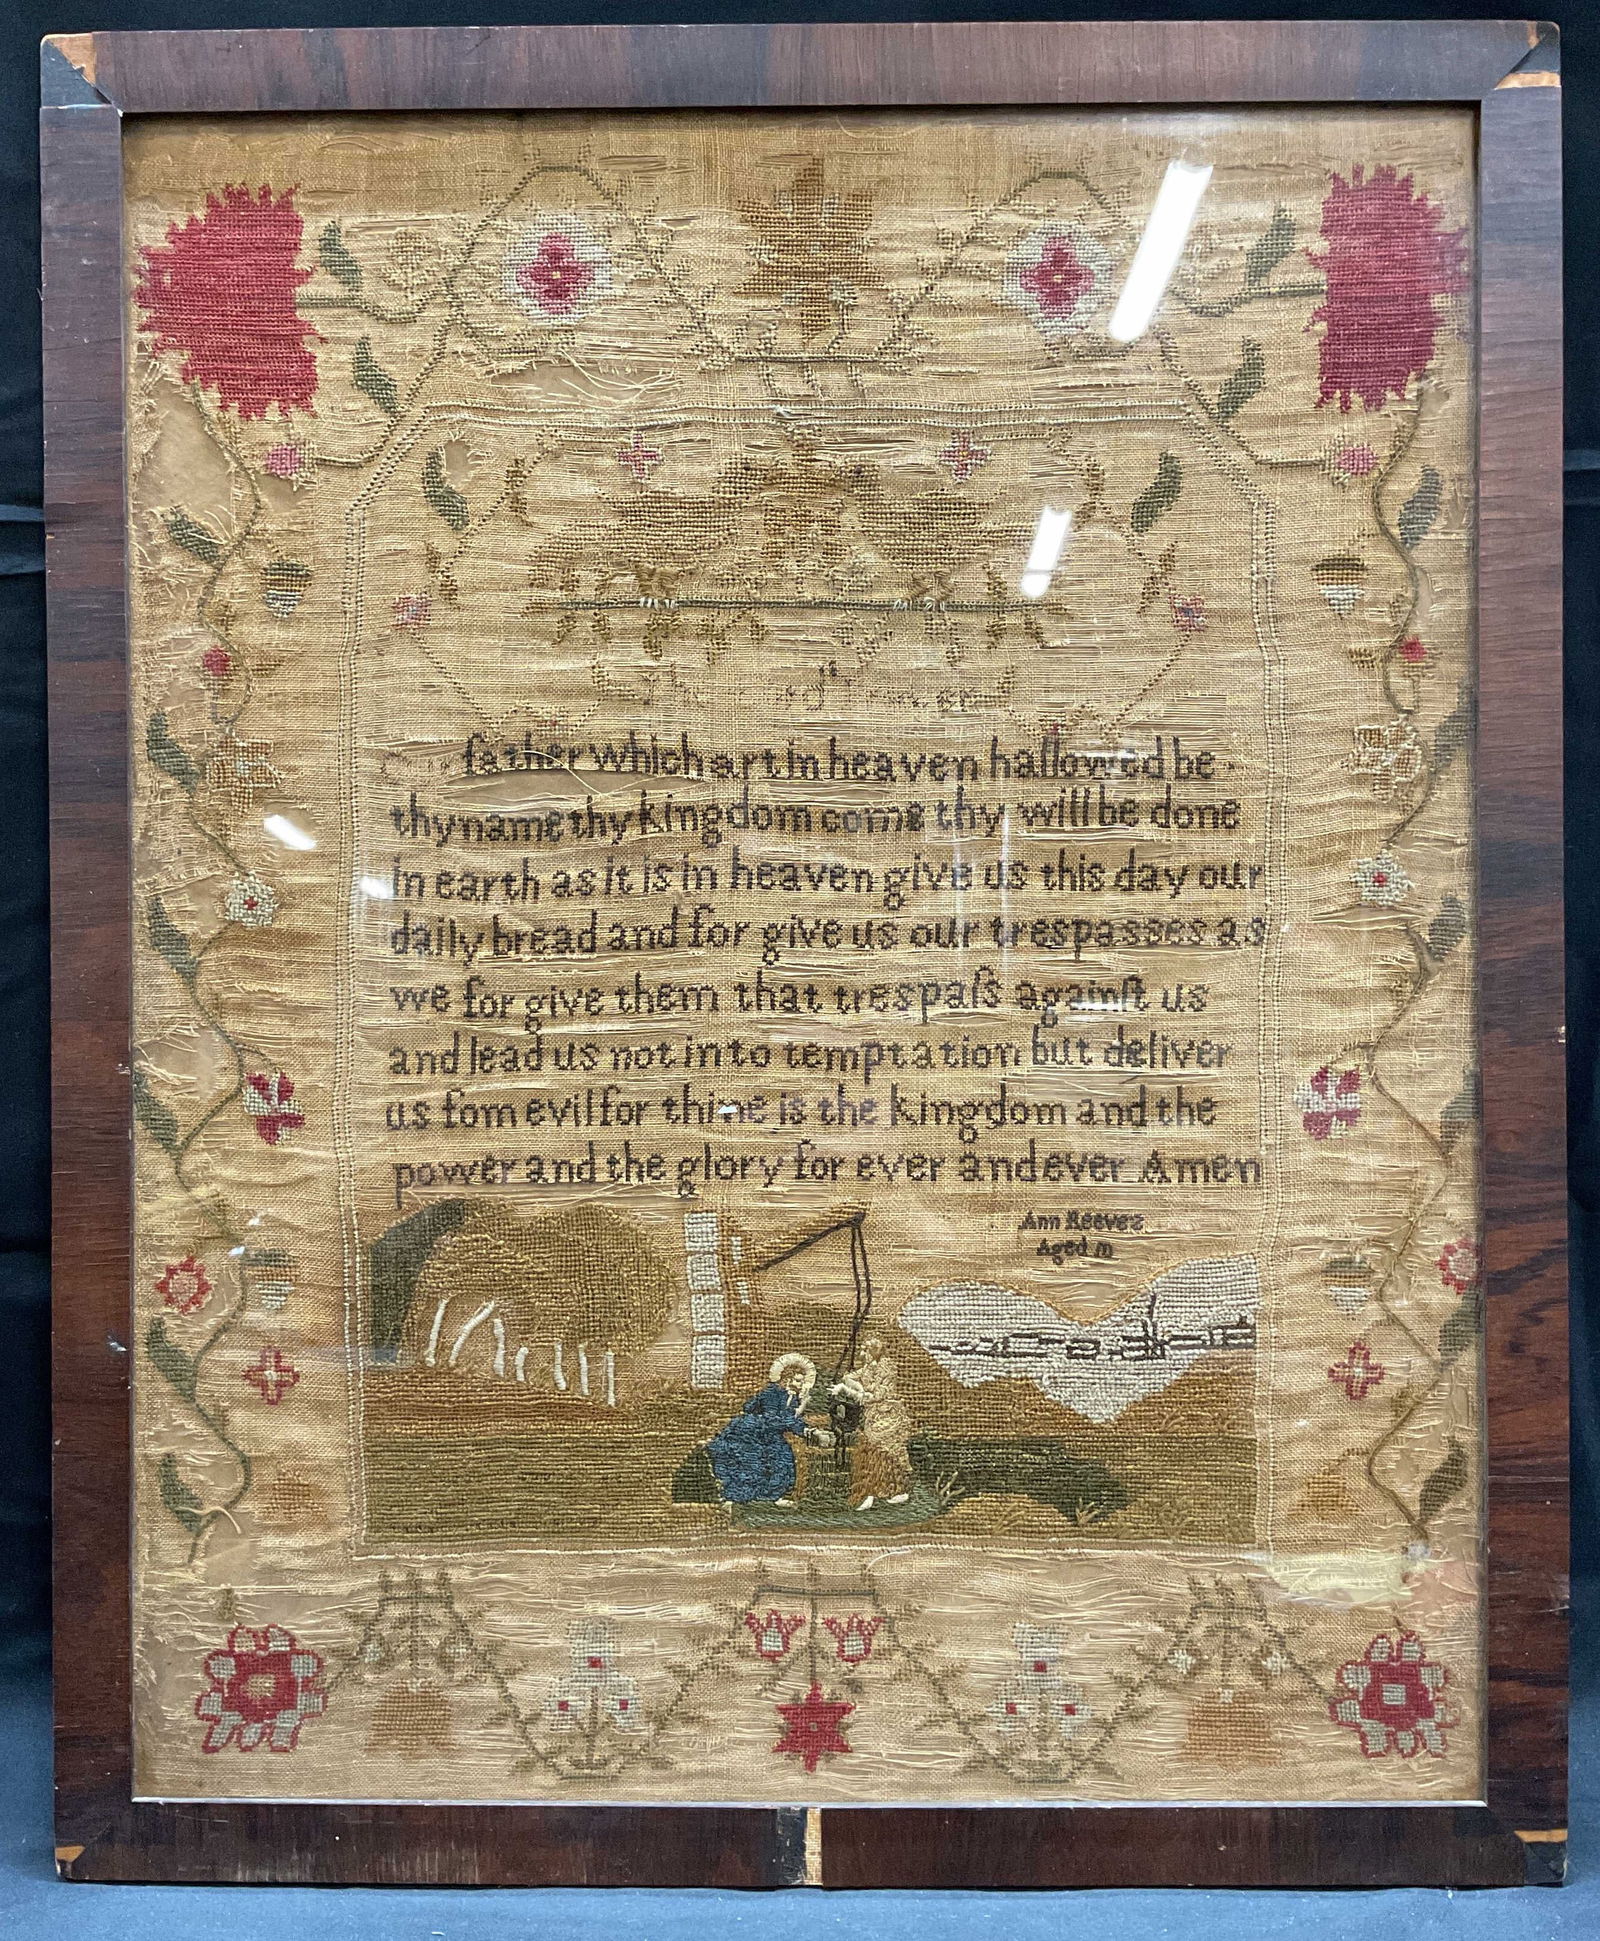 The
father which art in heaven hallowed be
thy name thy kingdom come thy will be done
in earth as it is in heaven give us this day our
daily bread and for give us our trespasses as
we for give them that trespaſs againſt us
and lead us not in to temptation but deliver
us fom evil for thine is the kingdom and the
power and the glory for ever and ever Amen
Ann Reeves
Aged